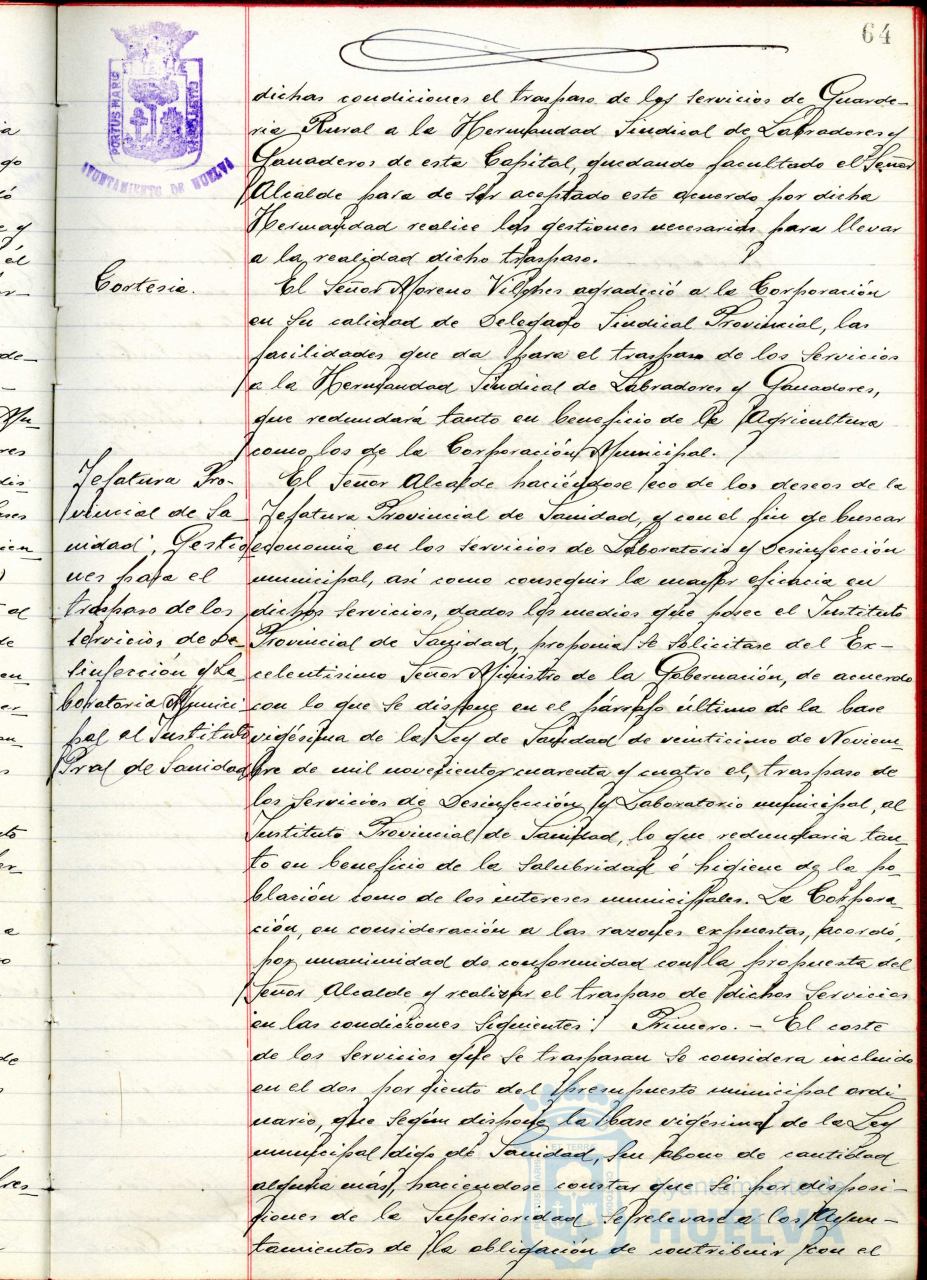 64
PORTUS MARIS
ET TERRÆ CUSTODIA
AYUNTAMIENTO DE HUELVA
dichas condiciones el traspaso de los servicios de Guarde-
ria Rural a la Hermandad Sindical de Labradores y
Ganaderos de esta Capital, quedando facultado el Señor
Alcalde para de ser aceptado este acuerdo por dicha
Hermandad realice las gestiones necesarias para llevar
a la realidad dicho traspaso.
Cortesia.
El Señor Moreno Vilches agradeció a la Corporación
en su calidad de Delegado Sindical Provincial, las
facilidades que da para el traspaso de los servicios
a la Hermandad Sindical de Labradores y Ganadores,
que redundará tanto en beneficio de la Agricultura
como los de la Corporación Municipal.
Jefatura Pro-
vincial de Sa-
nidad; Gestio
nes para el
traspaso de los
servicios de De-
sinfección y La-
boratorio Munici-
pal al Instituto
Pral de Sanidad
El Señor Alcalde haciéndose eco de los deseos de la
Jefatura Provincial de Sanidad, y con el fin de buscar
economia en los servicios de Laboratorio y Desinfección
municipal, así como conseguir la mayor eficacia en
dichos servicios, dados los medios que posee el Instituto
Provincial de Sanidad, proponia se solicitase del Ex-
celentisimo Señor Ministro de la Gobernación, de acuerdo
con lo que se dispone en el párrafo último de la base
vigésima de la Ley de Sanidad de veinticinco de Noviem-
bre de mil novecientos cuarenta y cuatro el, traspaso de
los servicios de Desinfección y Laboratorio municipal, al
Instituto Provincial de Sanidad, lo que redundaria tan-
to en beneficio de la salubridad é higiene de la po-
blación como de los intereses municipales. La Corpora-
ción, en consideración a las razones expuestas, acordó,
por unanimidad de conformidad con la propuesta del
Señor Alcalde y realizar el traspaso de dichos servicios
en las condiciones siguientes: Primero. - El coste
de los servicios que se traspasan se considera incluido
en el dos por ciento del presupuesto municipal ordi
nario, que según dispone la base vigésima de la Ley
municipal digo de Sanidad, sin abono de cantidad
alguna más, haciendose constar que si por disposi-
ciones de la Superioridad se relevase a los Ayun-
tamientos de la obligación de contribuir con el
Ayuntamiento de
HUELVA